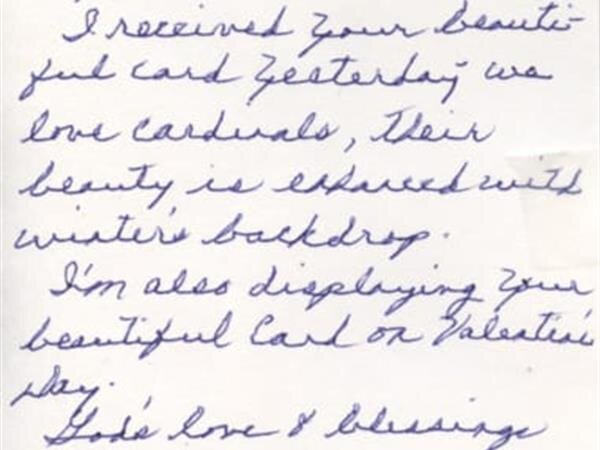 I received your beauti-
ful card yesterday we
love cardinals, their
beauty is enhanced with
winter's backdrop.
I'm also displaying your
beautiful Card on Valentine's
Day.
God's love & blessings